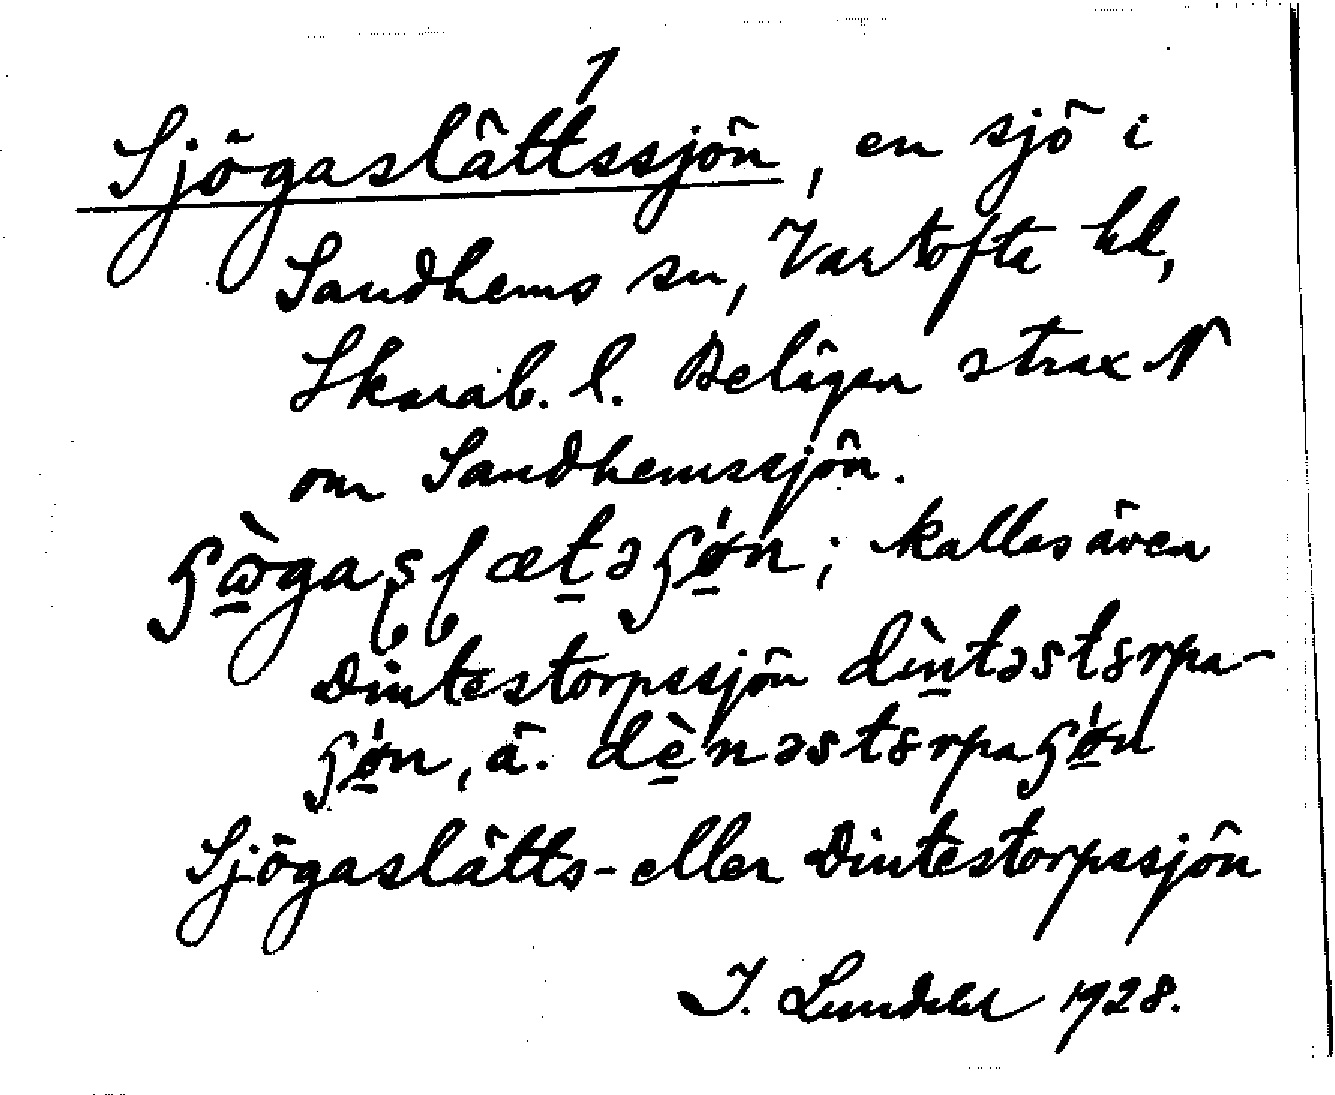 1
Sjögaslättssjön, en sjö i
Sandhems sn, Vartofte hd,
Skarab. l. Belägen strax N
om Sandhemssjön.
; kallas även
Dintestorpssjön
, ä.
Sjögaslätts- eller Dintestorpssjön
1928.